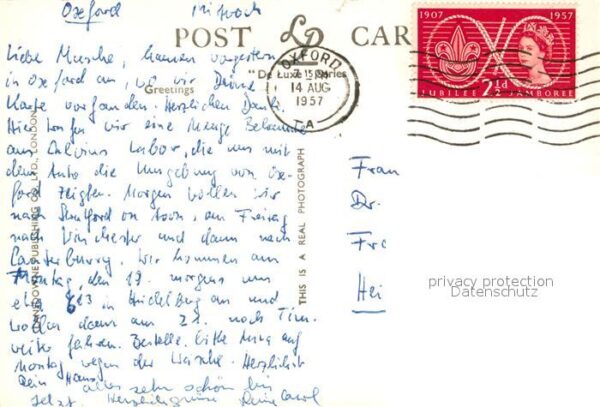 Oxford Mittwoch
POST CARD
Liebe Musche, kamen vorgestern
in Oxford an, wo wir Deine
Karte vorfanden. Herzlichen Dank.
Hier trafen wir eine Menge Bekannte
aus Calvins Labor, die uns mit
dem Auto die Umgebung von Ox-
ford zeigten. Morgen wollen wir
nach Stratford on Avon, am Freitag
nach Winchester und dann nach
Canterbury. Wir kommen am
Montag, den 19. morgens um
in Heidelberg an und
wollen dann am 21. nach
weiter fahren. Bestelle bitte auf
Montag wegen der Wäsche. Herzlichst
Dein Hans
alles sehr schön bin
jetzt. Herzliche Grüsse Deine Carol
"De Luxe" Series
Greetings
LANSDOWNE PUBLISHING CO. LTD., LONDON
THIS IS A REAL PHOTOGRAPH
OXFORD
14 AUG
1957
1907 1957
JUBILEE 2½d JAMBOREE
Frau
Dr.
Fre
Hei
privacy protection
Datenschutz